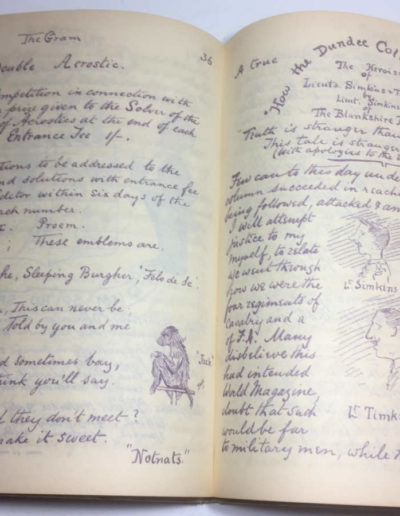 The Gram
36
Double Acrostic.
ompetition in connection with
prize given to the Solver of the
of Acrostics at the end of each
Entrance Fee 1/-.
tions to be addressed to the
nd solutions with entrance fee
ditor within six days of the
each number.
Proem.
These emblems are.
he, Sleeping Burgher, Felo de Se.
, This can never be
Told by you and me
d sometimes bay,
ink you'll say.
"Jack"
d they don't meet?
make it sweet.
"Notnats."
A True
"How the Dundee Col
The Heroism
of
Lieuts Simkins & T
by
Lieut. Simkins
of
The Blankshire
"Truth is stranger than
This tale is stranger
(With apologies to the
Few can to this day unde
column succeeded in reachin
being followed, attacked & am
I will attempt
justice to my
myself, to relate
we went through
how we were the
four regiments of
Cavalry and a
of F.A. Many
disbelieve this
had intended
World Magazine,
doubt that such
would be far
to military men, while
Lt Simkins
Lt Timk